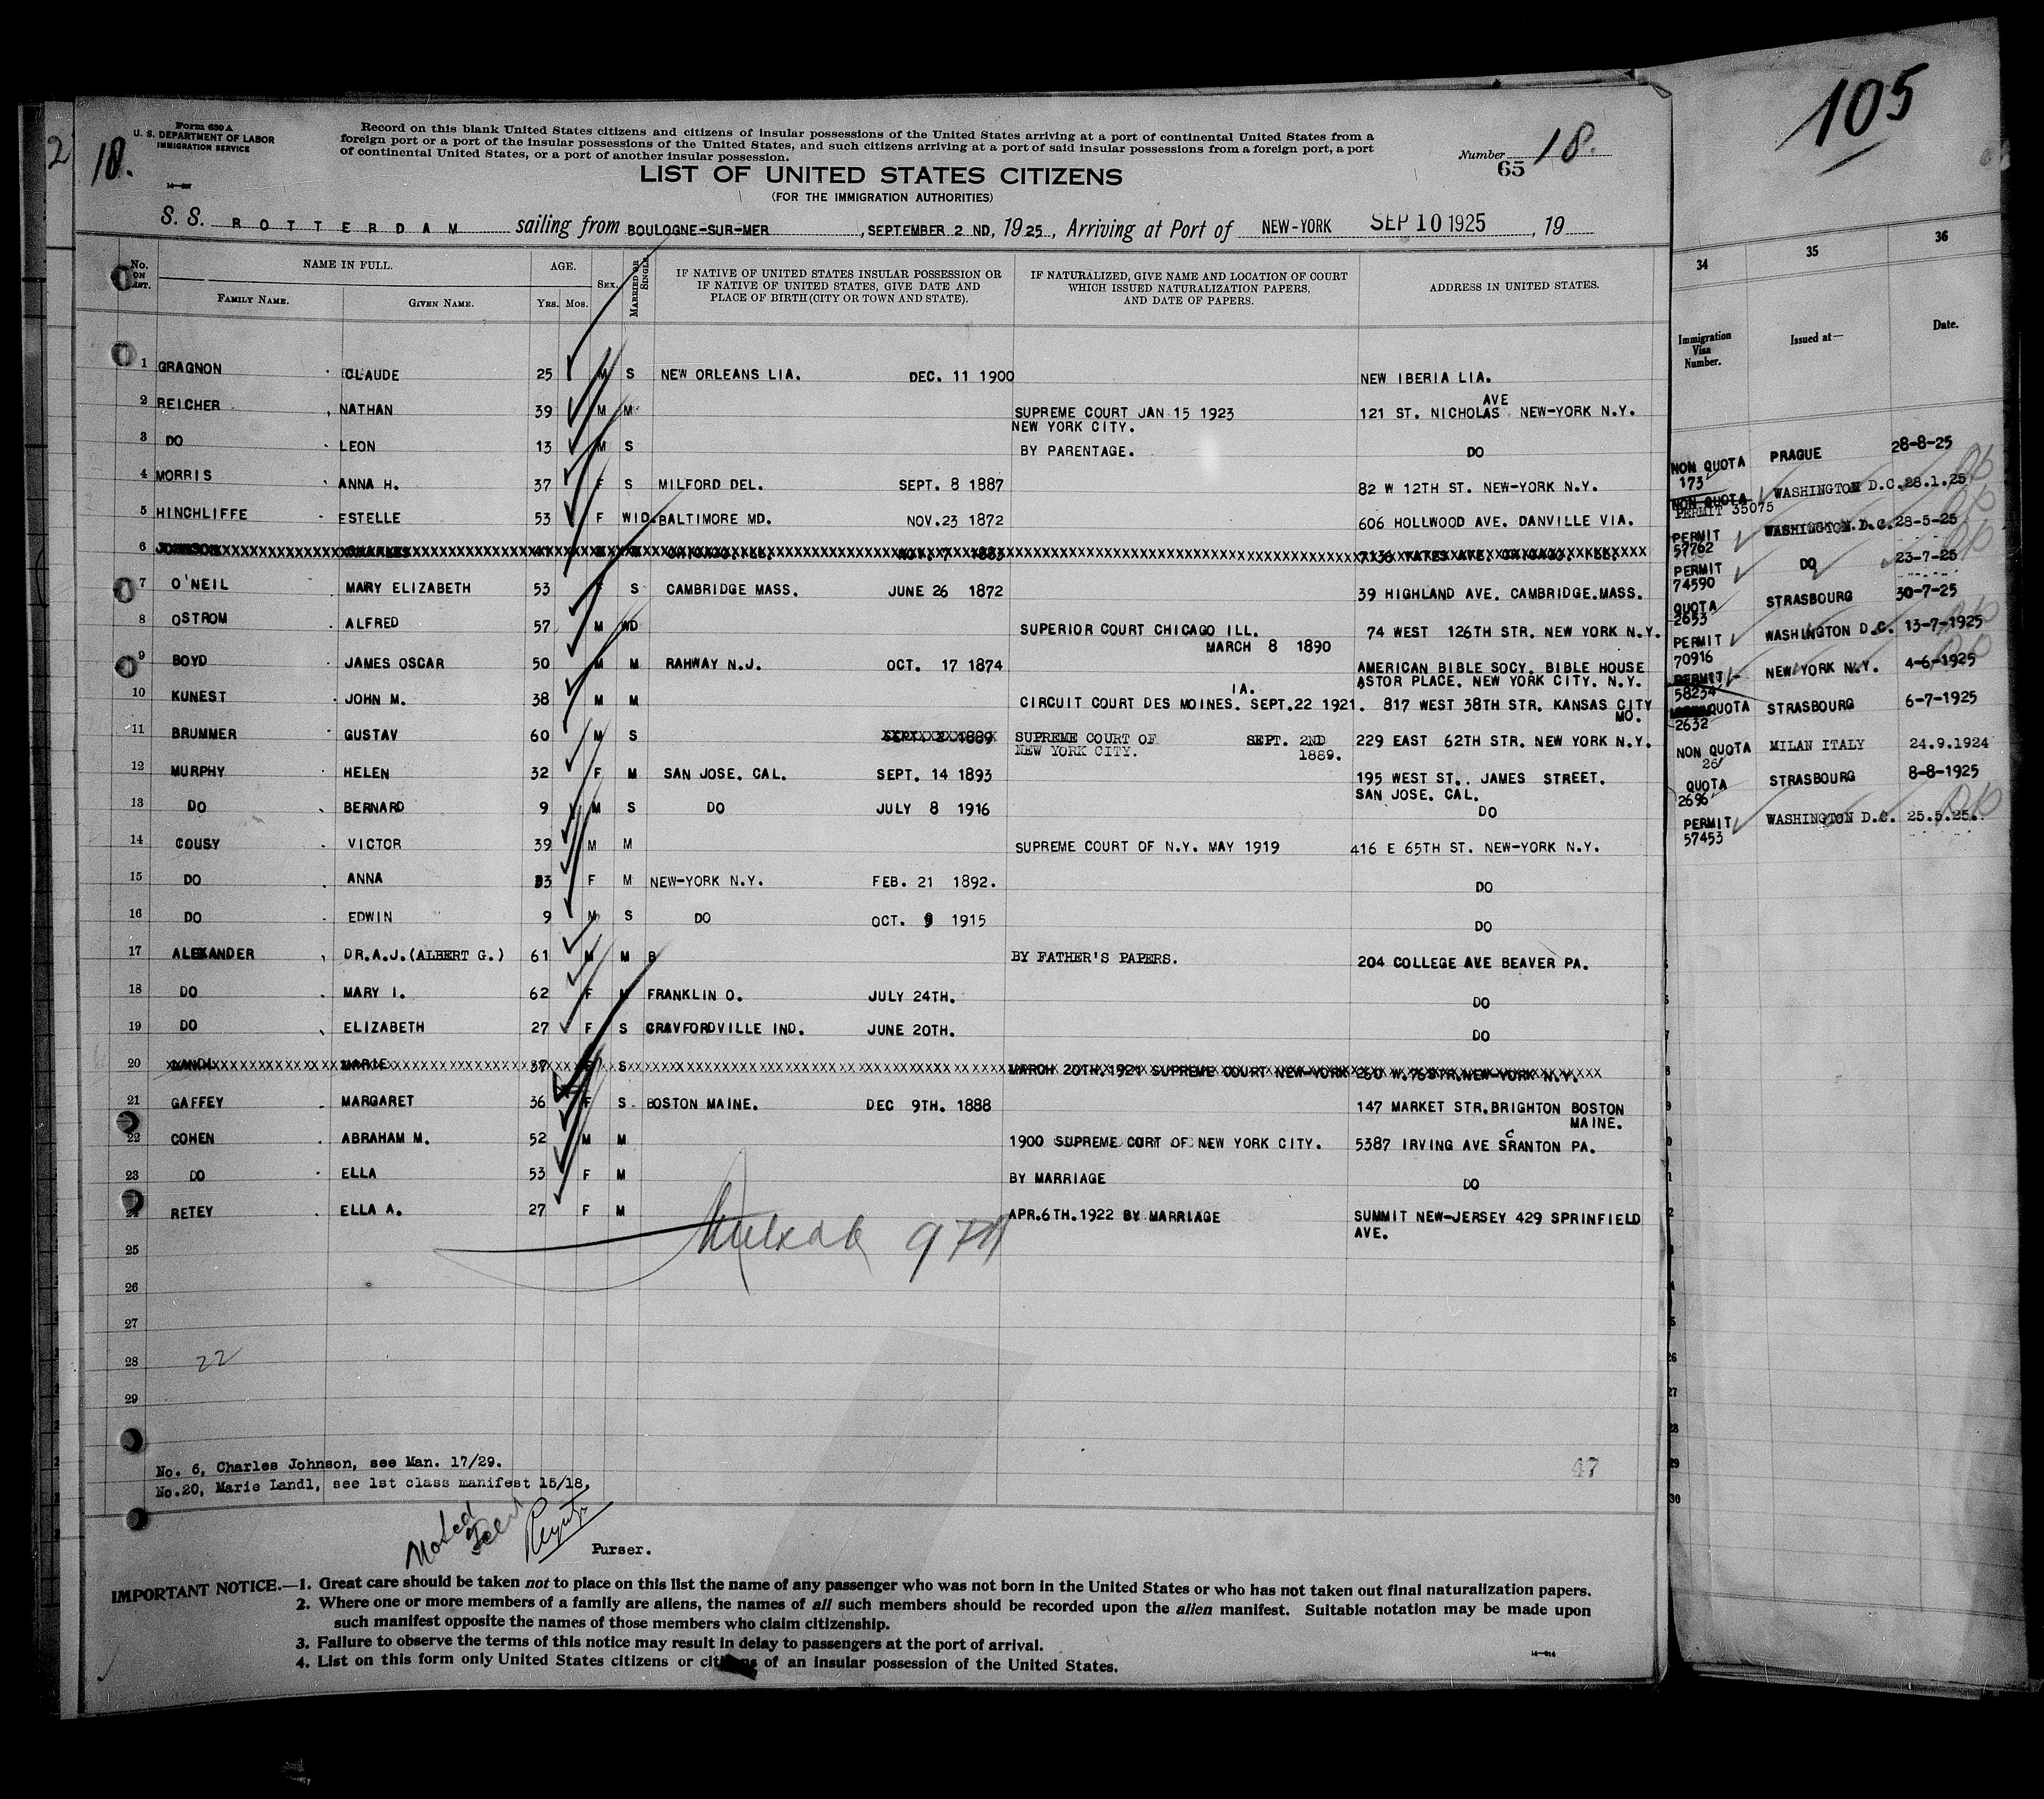 105
18.
Form 630 A
U. S. DEPARTMENT OF LABOR
IMMIGRATION SERVICE
Record on this blank United States citizens and citizens of insular possessions of the United States arriving at a port of continental United States from a
foreign port or a port of the insular possessions of the United States, and such citizens arriving at a port of said insular possessions from a foreign port, a port
of continental United States, or a port of another insular possession.
Number 18.
65
LIST OF UNITED STATES CITIZENS
(FOR THE IMMIGRATION AUTHORITIES)
S. S. ROTTERDAM sailing from BOULOGNE-SUR-MER, SEPTEMBER 2 ND, 1925, Arriving at Port of NEW-YORK SEP 10 1925, 19
No. ON LIST. NAME IN FULL. AGE. SEX. MARRIED OR SINGLE. IF NATIVE OF UNITED STATES INSULAR POSSESSION OR IF NATIVE OF UNITED STATES, GIVE DATE AND PLACE OF BIRTH (CITY OR TOWN AND STATE). IF NATURALIZED, GIVE NAME AND LOCATION OF COURT WHICH ISSUED NATURALIZATION PAPERS, AND DATE OF PAPERS. ADDRESS IN UNITED STATES.
FAMILY NAME. GIVEN NAME. Yrs. Mos.
1 GRAGNON CLAUDE 25 M S NEW ORLEANS LIA. DEC. 11 1900 NEW IBERIA LIA.
2 REICHER NATHAN 39 M M SUPREME COURT JAN 15 1923 121 ST. NICHOLAS AVE NEW-YORK N.Y.
NEW YORK CITY.
3 DO LEON 13 M S BY PARENTAGE. DO
4 MORRIS ANNA H. 37 F S MILFORD DEL. SEPT. 8 1887 82 W 12TH ST. NEW-YORK N.Y.
5 HINCHLIFFE ESTELLE 53 F WID. BALTIMORE MD. NOV.23 1872 606 HOLLWOOD AVE. DANVILLE VIA.
6 JOHNSON CHARLES 41 NOV. 7 1883 7136 YATES AVE. CHICAGO.
7 O'NEIL MARY ELIZABETH 53 F S CAMBRIDGE MASS. JUNE 26 1872 39 HIGHLAND AVE. CAMBRIDGE.MASS.
8 OSTROM ALFRED 57 M WD SUPERIOR COURT CHICAGO ILL. 74 WEST 126TH STR. NEW YORK N.Y.
MARCH 8 1890
9 BOYD JAMES OSCAR 50 M M RAHWAY N.J. OCT. 17 1874 AMERICAN BIBLE SOCY. BIBLE HOUSE
ASTOR PLACE. NEW YORK CITY. N.Y.
10 KUNEST JOHN M. 38 M M CIRCUIT COURT DES MOINES. IA. SEPT.22 1921. 817 WEST 38TH STR. KANSAS CITY
MO.
11 BRUMMER GUSTAV 60 M S SUPREME COURT OF SEPT. 2ND 229 EAST 62TH STR. NEW YORK N.Y.
NEW YORK CITY. 1889.
12 MURPHY HELEN 32 F M SAN JOSE. CAL. SEPT. 14 1893 195 WEST ST. JAMES STREET.
SAN JOSE. CAL.
13 DO BERNARD 9 M S DO JULY 8 1916 DO
14 COUSY VICTOR 39 M M SUPREME COURT OF N.Y. MAY 1919 416 E 65TH ST. NEW-YORK N.Y.
15 DO ANNA 33 F M NEW-YORK N.Y. FEB. 21 1892. DO
16 DO EDWIN 9 M S DO OCT. 9 1915 DO
17 ALEXANDER DR.A.J.(ALBERT G.) 61 M M B BY FATHER'S PAPERS. 204 COLLEGE AVE BEAVER PA.
18 DO MARY I. 62 F M FRANKLIN O. JULY 24TH. DO
19 DO ELIZABETH 27 F S CRAVFORDVILLE IND. JUNE 20TH. DO
20 LANDL MARIE 37 S MARCH 20TH.1921 SUPREME COURT NEW-YORK STR.NEW-YORK N.Y.
21 GAFFEY MARGARET 36 F S. BOSTON MAINE. DEC 9TH. 1888 147 MARKET STR.BRIGHTON BOSTON
MAINE.
22 COHEN ABRAHAM M. 52 M M 1900 SUPREME CORT OF NEW YORK CITY. 5387 IRVING AVE SCRANTON PA.
23 DO ELLA 53 F M BY MARRIAGE DO
24 RETEY ELLA A. 27 F M APR.6TH.1922 BY MARRIAGE SUMMIT NEW-JERSEY 429 SPRINFIELD
AVE.
25
26
27
28 22
29
47
No. 6, Charles Johnson, see Man. 17/29.
No.20, Marie Landl, see 1st class manifest 15/18.
Noted
Purser.
IMPORTANT NOTICE.—1. Great care should be taken not to place on this list the name of any passenger who was not born in the United States or who has not taken out final naturalization papers.
2. Where one or more members of a family are aliens, the names of all such members should be recorded upon the alien manifest. Suitable notation may be made upon
such manifest opposite the names of those members who claim citizenship.
3. Failure to observe the terms of this notice may result in delay to passengers at the port of arrival.
4. List on this form only United States citizens or citizens of an insular possession of the United States.
34 35 36
Immigration Visa Number. Issued at— Date.
NON QUOTA 173 PRAGUE 28-8-25
NON QUOTA PERMIT 35075 WASHINGTON D.C. 28.1.25
PERMIT 57762 WASHINGTON.D.C. 28-5-25
PERMIT 74590 DO 23-7-25
QUOTA 2653 STRASBOURG 30-7-25
PERMIT 70916 WASHINGTON D.C. 13-7-1925
PERMIT 58234 NEW YORK N.Y. 4-6-1925
QUOTA 2632 STRASBOURG 6-7-1925
NON QUOTA 26 MILAN ITALY 24.9.1924
QUOTA 2696 STRASBOURG 8-8-1925
PERMIT 57453 WASHINGTON D.C. 25.5.25.